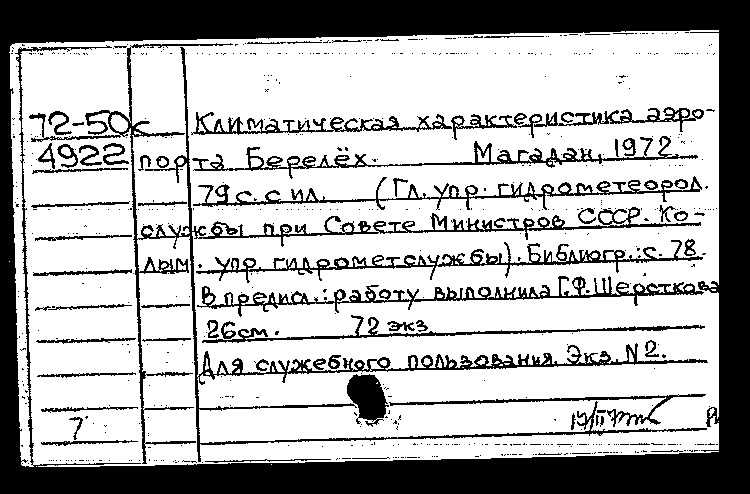 72-50с Климатическая характеристика аэро-
4922 порта Берелёх. Магадан, 1972.
79 с. с ил. (Гл. упр. гидрометеорол.
службы при Совете Министров СССР. Ко-
лым. упр. гидрометслужбы). Библиогр.: с. 78
В предисл.: работу выполнила Г.Ф. Шерсткова
26 см. 72 экз.
Для служебного пользования. Экз. N 2.
7